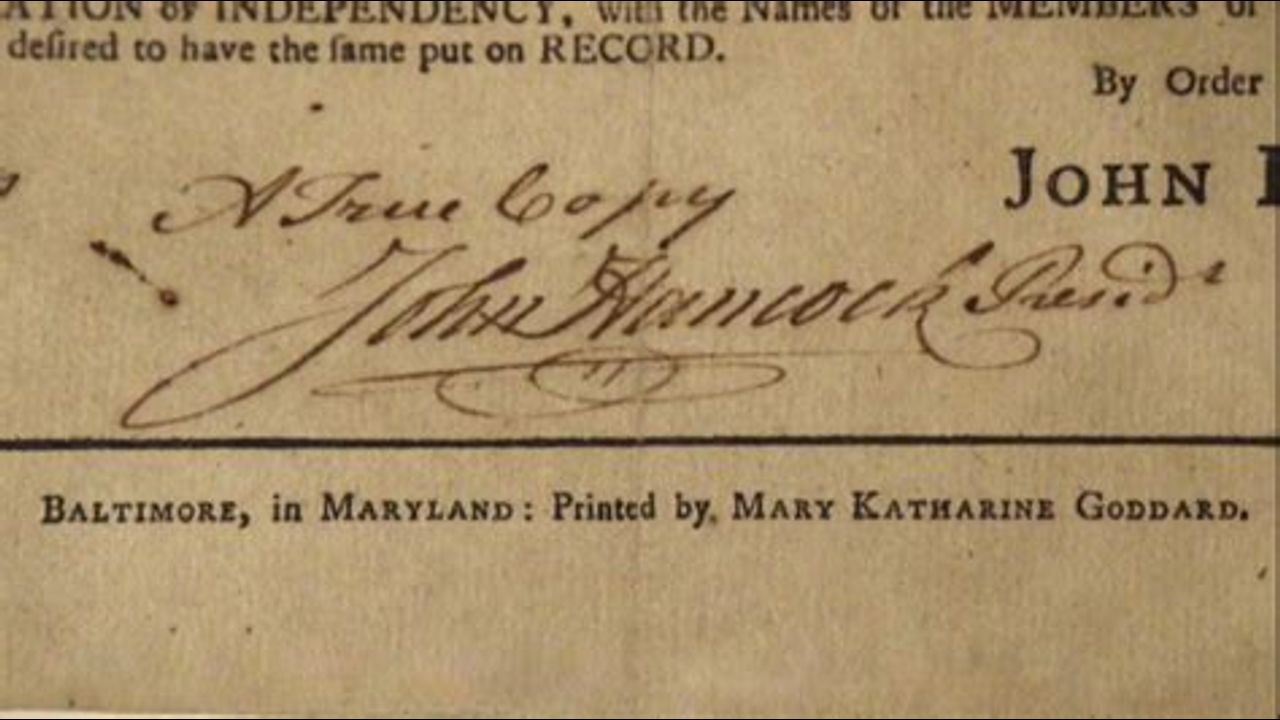 ATION of INDEPENDENCY, with the Names of the MEMBERS of
deſired to have the ſame put on RECORD.
By Order
JOHN
A True Copy
John Hancock Presidt
BALTIMORE, in MARYLAND: Printed by MARY KATHARINE GODDARD.